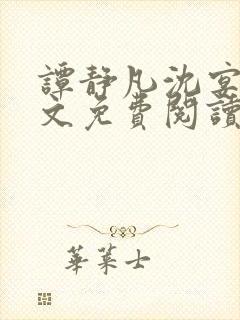 譚靜凡沈宴
文免費閱讀
華萊士